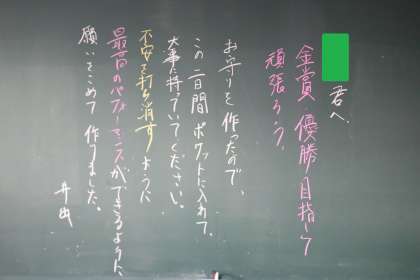 君へ
金賞・優勝目指して
頑張ろう。
お守りを作ったので、
この二日間ポケットに入れて、
大事に持っていてください。
不安を打ち消すように
最高のパフォーマンスができるように、
願いをこめて作りました。
井出